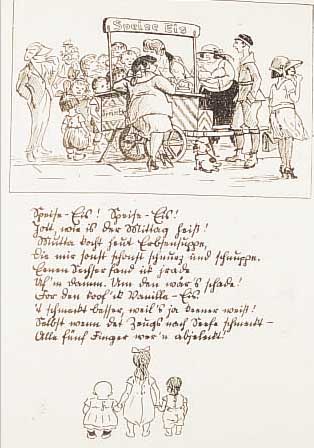 Speise Eis
Speise-Eis! Speise-Eis!
Jott, wie is der Mittag heiß!
Mutta kocht heut Erbsensuppe,
die mir sonst schonst schnurz und schnuppe.
Eenen Sechser fand ik jrade
Uf'm Damm. Um den wär's schade!
For den koof' ik Vanilla-Eis.
't schmeckt besser, weil's ja keener weiß!
Selbst wenn det Zeugs nach Seefe schmeckt –
Alle fünf Finger wer'n abjeleckt!